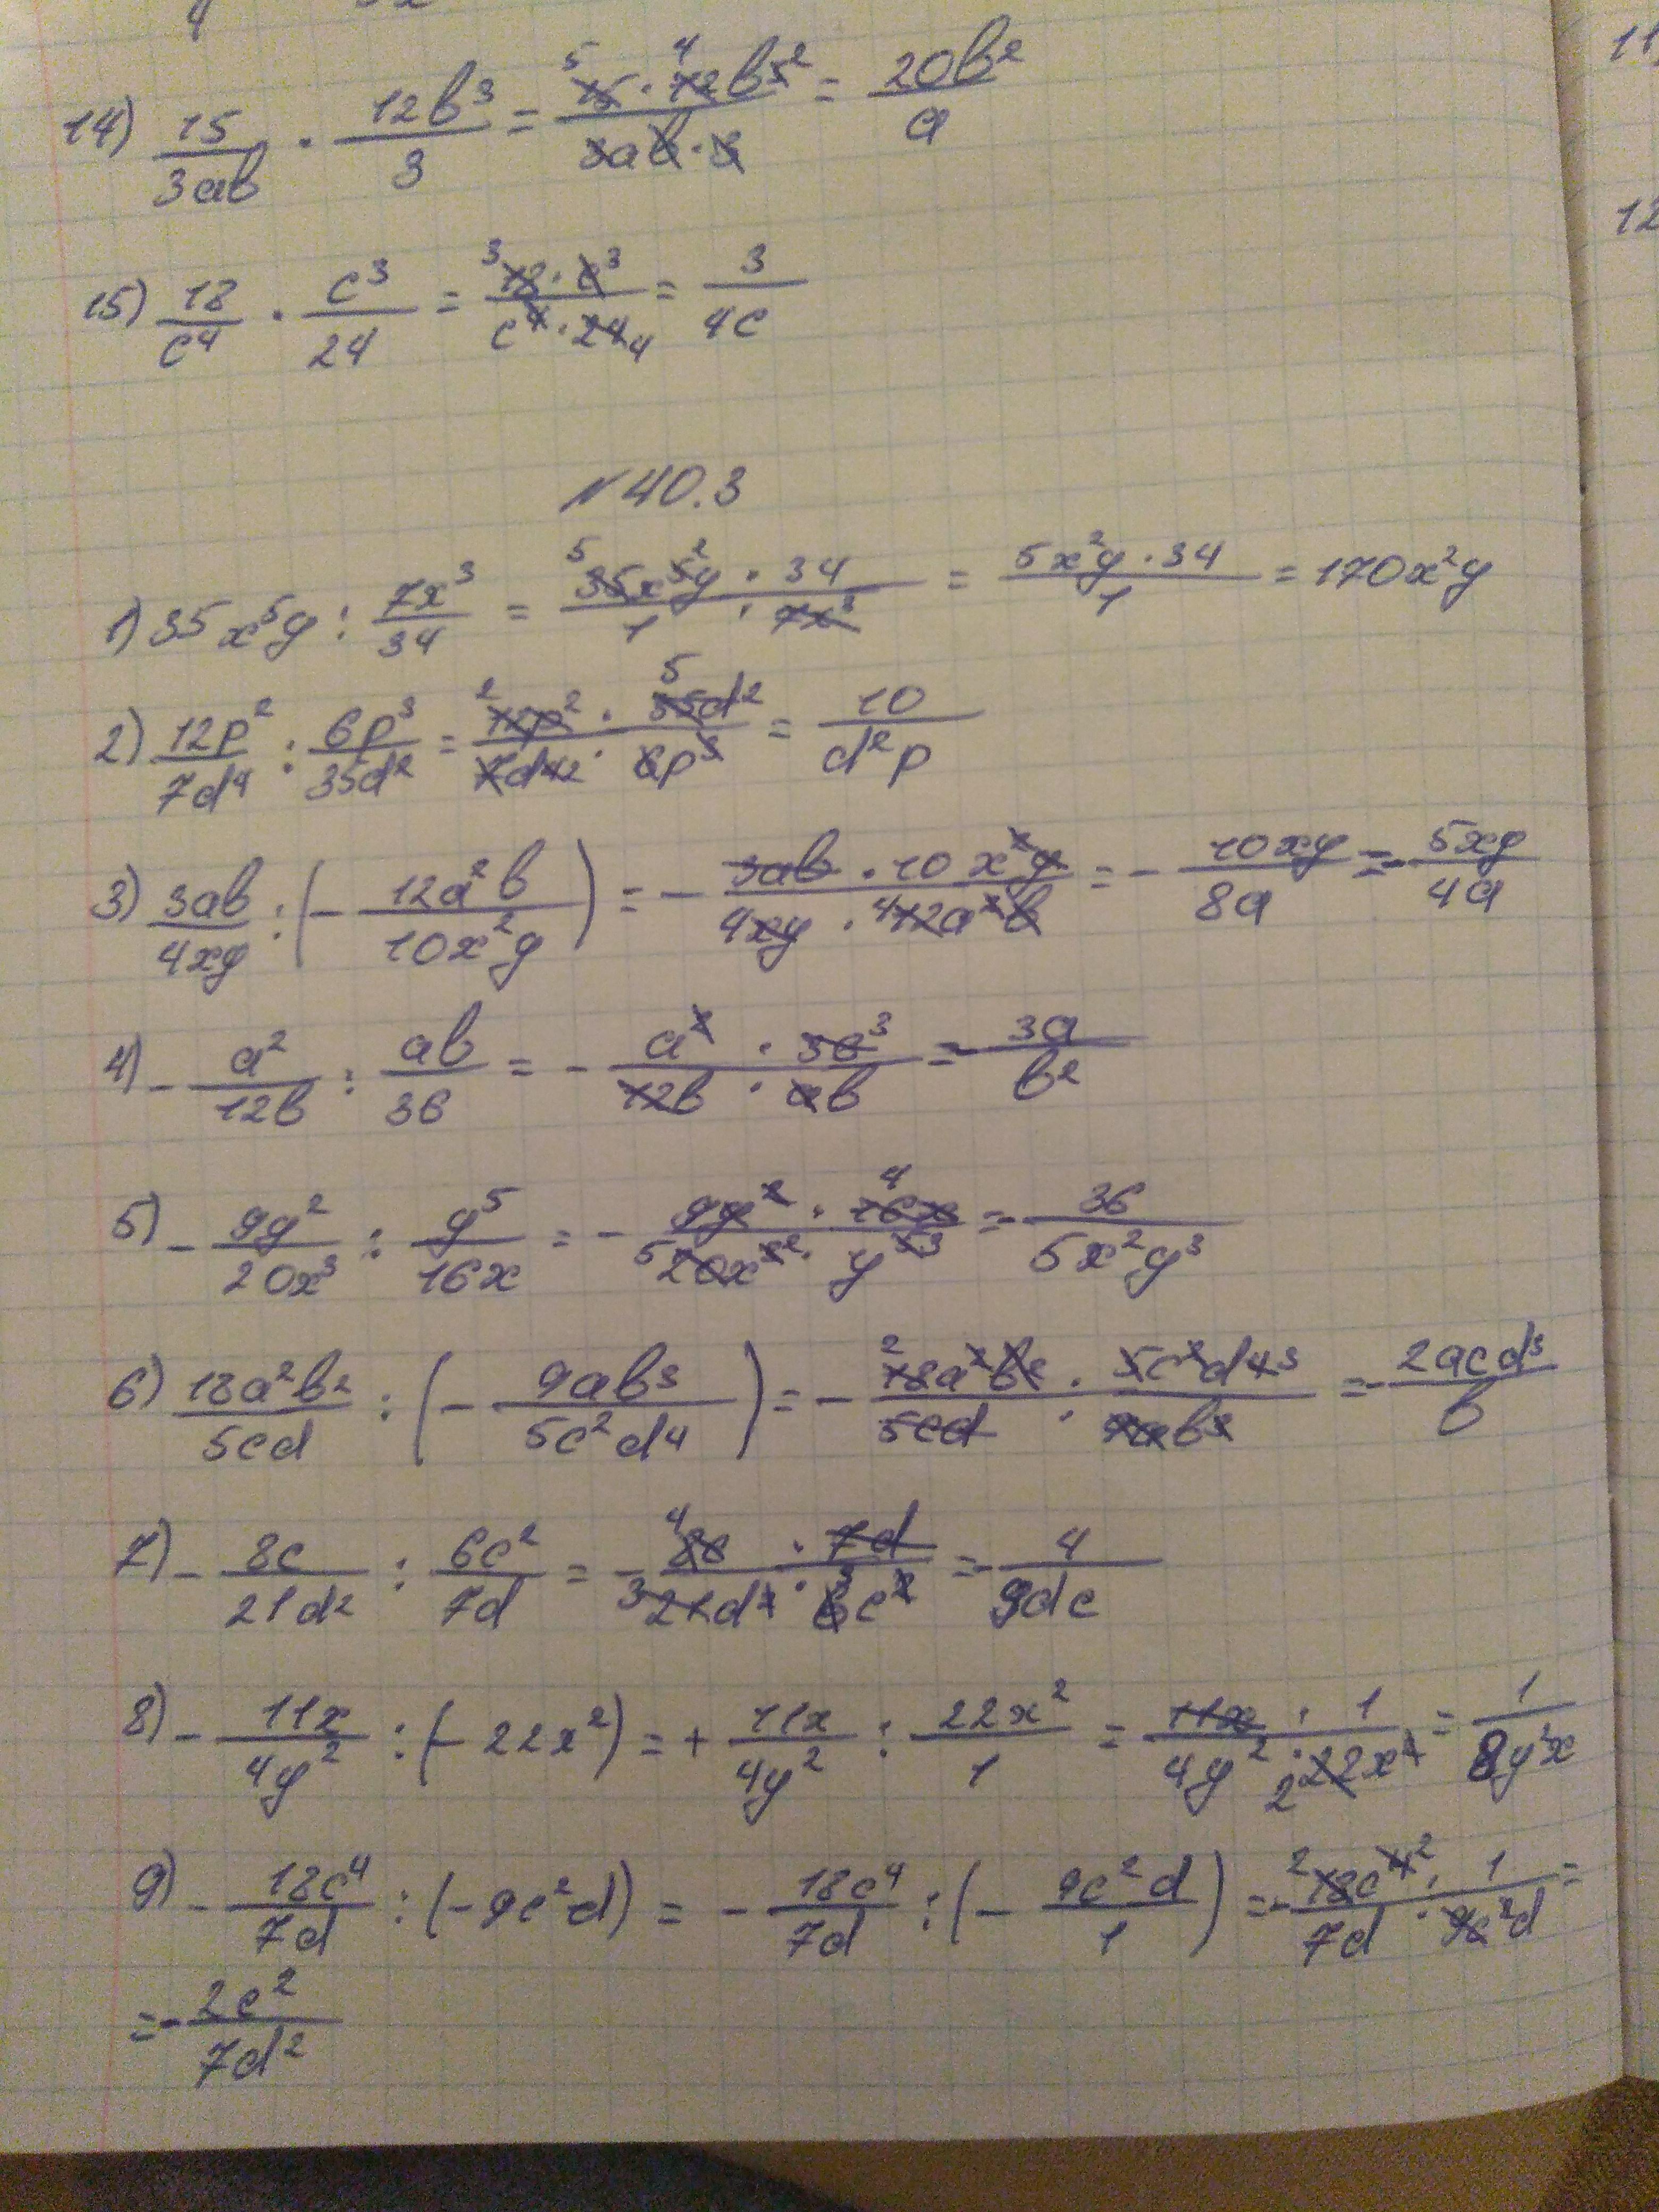 14) 15/3ab · 12b³/3 = 15·12b³²/3ab·3 = 20b²/a
15) 18/c⁴ · c³/24 = 18·c³/c⁴·24 = 3/4c
№40.3
1) 35x⁵y : 7x³/34 = 35x⁵y · 34/1 · 7x³ = 5x²y · 34/1 = 170x²y
2) 12p²/7d⁴ : 6p³/35d² = 12p² · 35d²/7d⁴ · 6p³ = 10/d²p
3) 3ab/4xy : (- 12a²b/10x²y) = - 3ab · 10x²y/4xy · 12a²b = - 10xy/8a = - 5xy/4a
4) - a²/12b : ab/36 = - a² · 36³/12b · ab = - 3a/b²
5) - 9y²/20x³ : y⁵/16x = - 9y² · 16x/20x³ · y⁵ = - 36/5x²y³
6) 18a²b²/5cd : (- 9ab³/5c²d⁴) = - 18a²b² · 5c²d⁴/5cd · 9ab³ = - 2acd³/b
7) - 8c/21d² : 6c²/7d = - 8c · 7d/21d² · 6c² = - 4/9dc
8) - 11x/4y² : (- 22x²) = + 11x/4y² : 22x²/1 = 11x · 1/4y² · 22x² = 1/8y²x
9) - 18c⁴/7d : (-9c²d) = - 18c⁴/7d : (- 9c²d/1) = - 18c⁴ · 1/7d · 9c²d =
= - 2c²/7d²